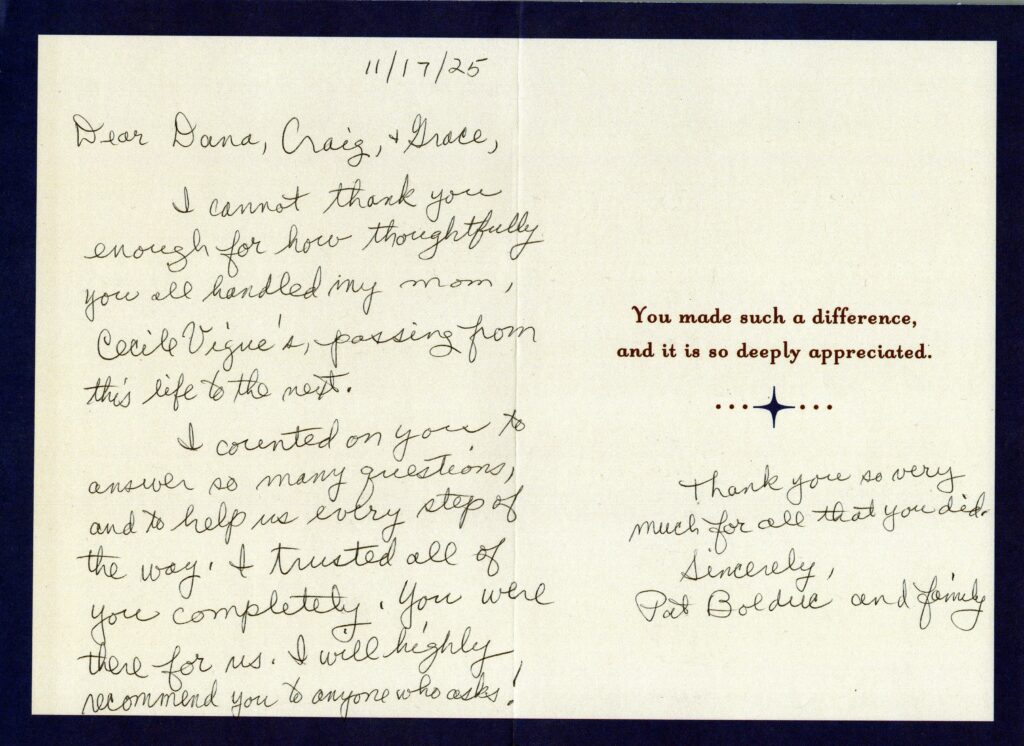 11/17/25
Dear Dana, Craig, + Grace,
I cannot thank you
enough for how thoughtfully
you all handled my mom,
Cecile Vigue's, passing from
this life to the next.
I counted on you to
answer so many questions,
and to help us every step of
the way. I trusted all of
you completely. You were
there for us. I will highly
recommend you to anyone who asks!
You made such a difference,
and it is so deeply appreciated.
Thank you so very
much for all that you did.
Sincerely,
Pat Bolduc and family